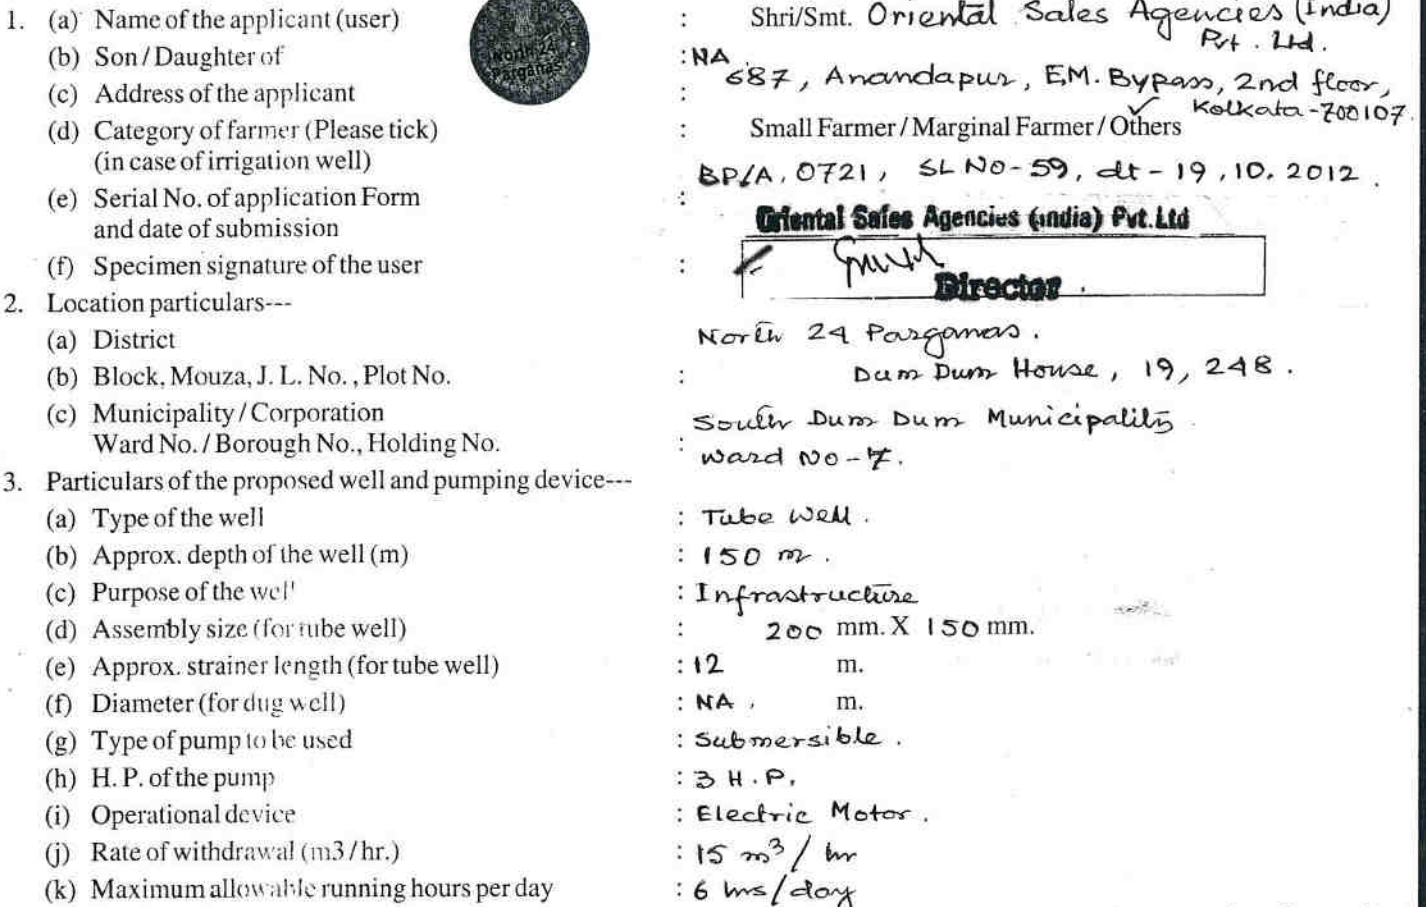 1. (a) Name of the applicant (user) : Shri/Smt. Oriental Sales Agencies (India)
Pvt. Ltd.
North 24
Parganas
(b) Son / Daughter of : NA
(c) Address of the applicant : 687, Anandapur, E.M. Bypass, 2nd floor,
Kolkata-700107.
(d) Category of farmer (Please tick) : Small Farmer / Marginal Farmer / Others ✓
(in case of irrigation well)
(e) Serial No. of application Form : BP/A, 0721, SL NO-59, dt - 19.10.2012.
and date of submission
Oriental Sales Agencies (india) Pvt.Ltd
(f) Specimen signature of the user :
Director
2. Location particulars---
(a) District North 24 Parganas.
(b) Block, Mouza, J. L. No. , Plot No. : Dum Dum House, 19, 248.
(c) Municipality / Corporation South Dum Dum Municipality
Ward No. / Borough No., Holding No. : Ward No-7.
3. Particulars of the proposed well and pumping device---
(a) Type of the well : Tube Well.
(b) Approx. depth of the well (m) : 150 m.
(c) Purpose of the well : Infrastructure
(d) Assembly size (for tube well) : 200 mm. X 150 mm.
(e) Approx. strainer length (for tube well) : 12 m.
(f) Diameter (for dug well) : NA, m.
(g) Type of pump to be used : Submersible.
(h) H. P. of the pump : 3 H.P.
(i) Operational device : Electric Motor.
(j) Rate of withdrawal (m3 / hr.) : 15 m³ / hr
(k) Maximum allowable running hours per day : 6 hrs/day